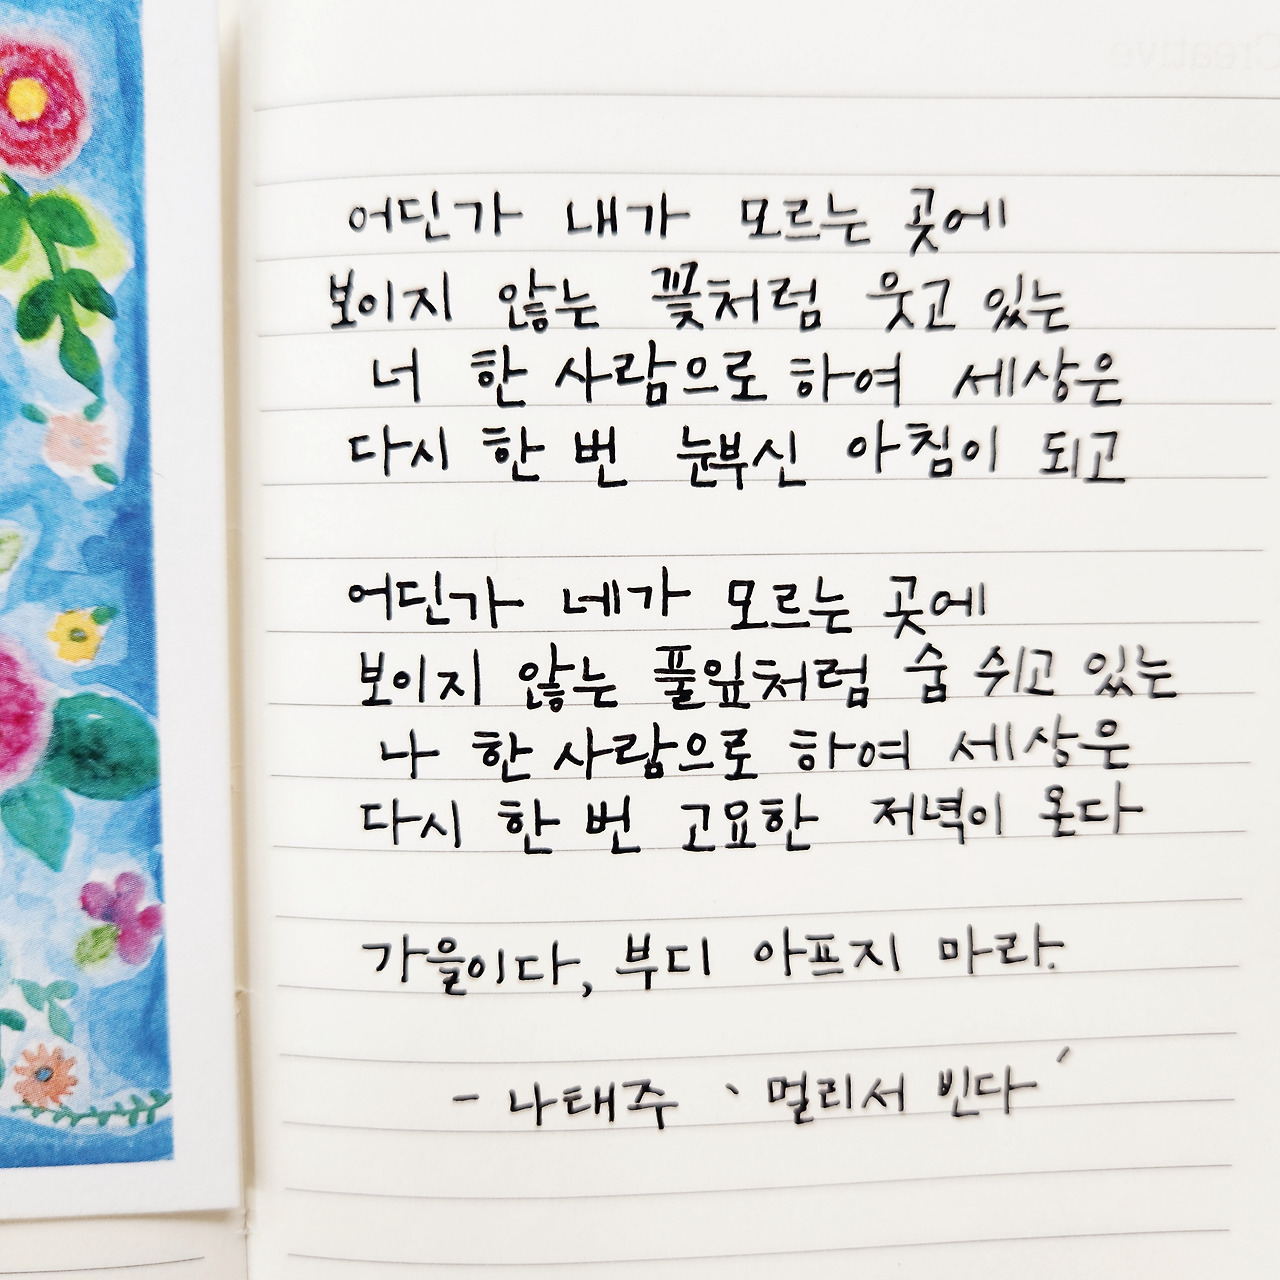 어딘가 내가 모르는 곳에
보이지 않는 꽃처럼 웃고 있는
너 한 사람으로 하여 세상은
다시 한 번 눈부신 아침이 되고
어딘가 네가 모르는 곳에
보이지 않는 풀잎처럼 숨 쉬고 있는
나 한 사람으로 하여 세상은
다시 한 번 고요한 저녁이 온다
가을이다, 부디 아프지 마라.
- 나태주 '멀리서 빈다'